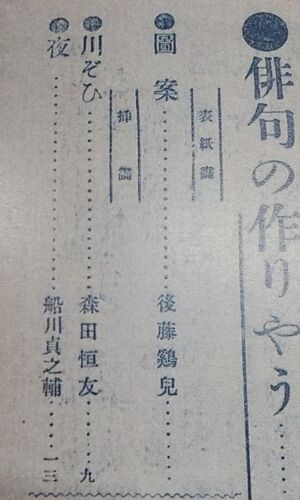 俳句の作りやう…………
表紙畫
圖案…………後藤鷄兒
挿畫
川ぞひ…………森田恒友…………九
夜…………船川貞之輔…………一三